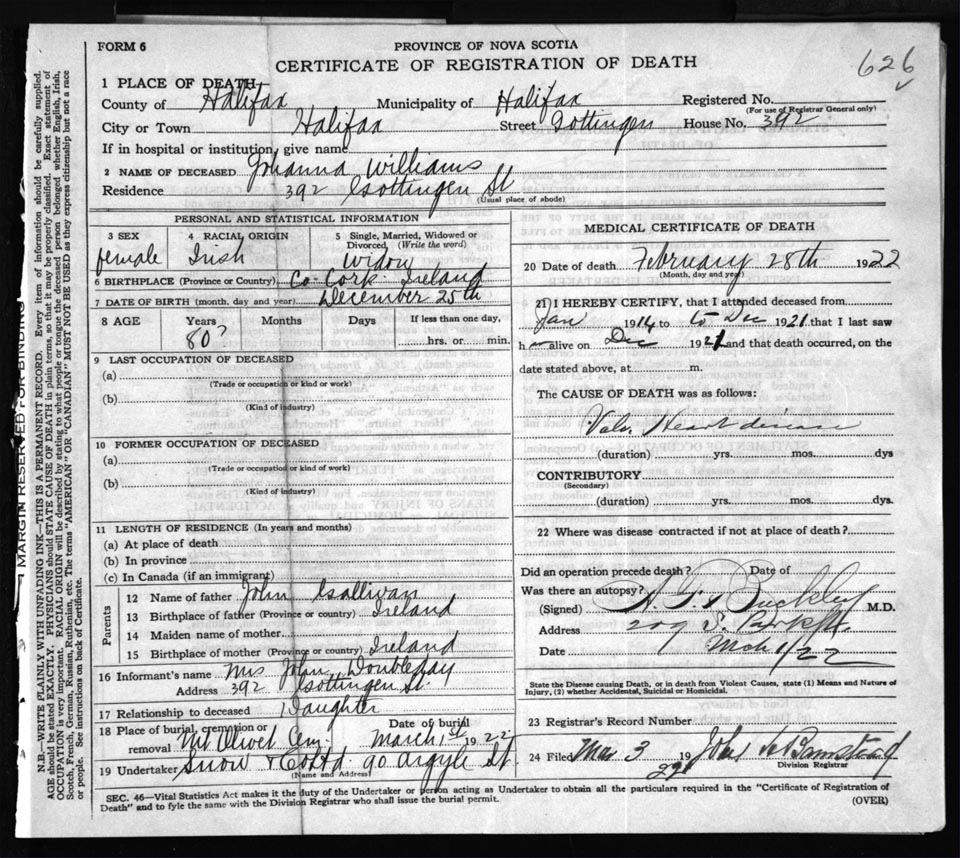 FORM 6
PROVINCE OF NOVA SCOTIA
CERTIFICATE OF REGISTRATION OF DEATH
626
1 PLACE OF DEATH
County of Halifax Municipality of Halifax Registered No.
(For use of Registrar General only)
City or Town Halifax Street Gottingen House No. 392
If in hospital or institution, give name
2 NAME OF DECEASED Johanna Williams
Residence 392 Gottingen St
(Usual place of abode)
PERSONAL AND STATISTICAL INFORMATION
3 SEX 4 RACIAL ORIGIN 5 Single, Married, Widowed or Divorced, (Write the word)
female Irish Widow
6 BIRTHPLACE (Province or Country) Co-Cork-Ireland
7 DATE OF BIRTH (month, day and year) December 25th
8 AGE Years Months Days If less than one day,
80? hrs. or min.
9 LAST OCCUPATION OF DECEASED
(a)
(Trade or occupation or kind or work)
(b)
(Kind of industry)
10 FORMER OCCUPATION OF DECEASED
(a)
(Trade or occupation or kind or work)
(b)
(Kind of industry)
11 LENGTH OF RESIDENCE (In years and months)
(a) At place of death
(b) In province
(c) In Canada (if an immigrant)
Parents
12 Name of father John
13 Birthplace of father (Province or country) Ireland
14 Maiden name of mother
15 Birthplace of mother (Province or country) Ireland
16 Informant's name Mrs John Doubleday
Address 392 Gottingen St.
17 Relationship to deceased Daughter
18 Place of burial, cremation or removal Mt Olivet Cem. Date of burial March 1st 1922
19 Undertaker Snow & Co Ltd 90 Argyle St.
(Name and Address)
MEDICAL CERTIFICATE OF DEATH
20 Date of death February 28th 1922
(Month, day and year)
21 I HEREBY CERTIFY, that I attended deceased from
Jan 1914 to Dec 1921 that I last saw
h alive on Dec 1921 and that death occurred, on the
date stated above, at m.
The CAUSE OF DEATH was as follows:
Valv. Heart disease
(duration) yrs. mos. dys
CONTRIBUTORY
(Secondary)
(duration) yrs. mos. dys.
22 Where was disease contracted if not at place of death?
Did an operation precede death? Date of
Was there an autopsy?
(Signed) Buckley M.D.
Address 209 S. Park St.
Date Mch 1/22
State the Disease causing Death, or in death from Violent Causes, state (1) Means and Nature of
Injury, (2) whether Accidental, Suicidal or Homicidal.
23 Registrar's Record Number
24 Filed Mar 3 1922 John
Division Registrar
SEC. 46—Vital Statistics Act makes it the duty of the Undertaker or person acting as Undertaker to obtain all the particulars required in the "Certificate of Registration of
Death" and to fyle the same with the Division Registrar who shall issue the burial permit.
(OVER)
MARGIN RESERVED FOR BINDING
N.B.—WRITE PLAINLY WITH UNFADING INK—THIS IS A PERMANENT RECORD. Every item of information should be carefully supplied.
AGE should be stated EXACTLY. PHYSICIANS should STATE CAUSE OF DEATH in plain terms, so that it may be properly classified. Exact statement of
OCCUPATION is very important. RACIAL ORIGIN will be described by stating to what people or tongue the deceased person belonged whether English, Irish,
Scotch, French, German, Russian, Ruthenian, etc. The terms "AMERICAN" OR "CANADIAN" MUST NOT BE USED as they express citizenship but not a race
or people. See instructions on back of Certificate.